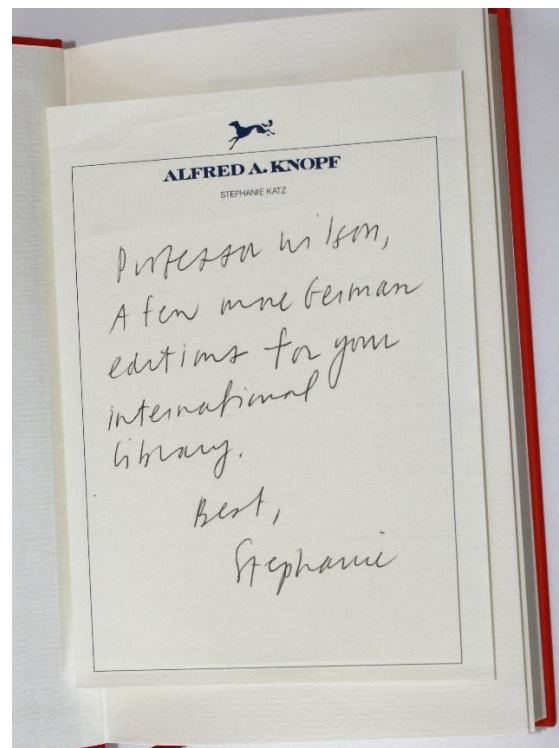 ALFRED A. KNOPF
STEPHANIE KATZ
Professor Wilson,
A few more German
editions for your
international
library.
Best,
Stephanie